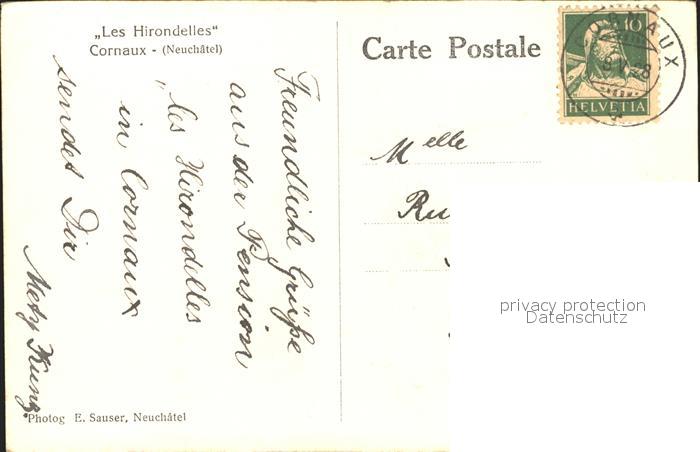 „Les Hirondelles"
Cornaux - (Neuchâtel)
Carte Postale
CORNAUX
10
HELVETIA
Freundliche Grüße
aus der Pension
„Les Hirondelles
in Cornaux
sendet Dir
Mety Kunz.
Melle
Ru
privacy protection
Datenschutz
Photog E. Sauser, Neuchâtel